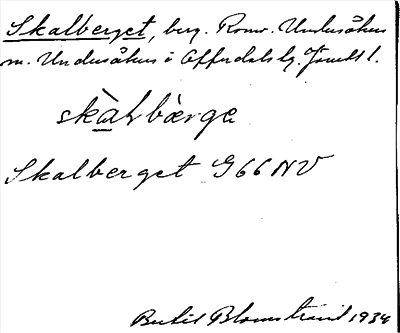 Skalberget, berg. Romr. Undersåkers
m. Undersåkers i Offerdals lg. Jämtl.
skàlbàrgɐ
Skalberget G66NV
Bertil Blomstrand 1934